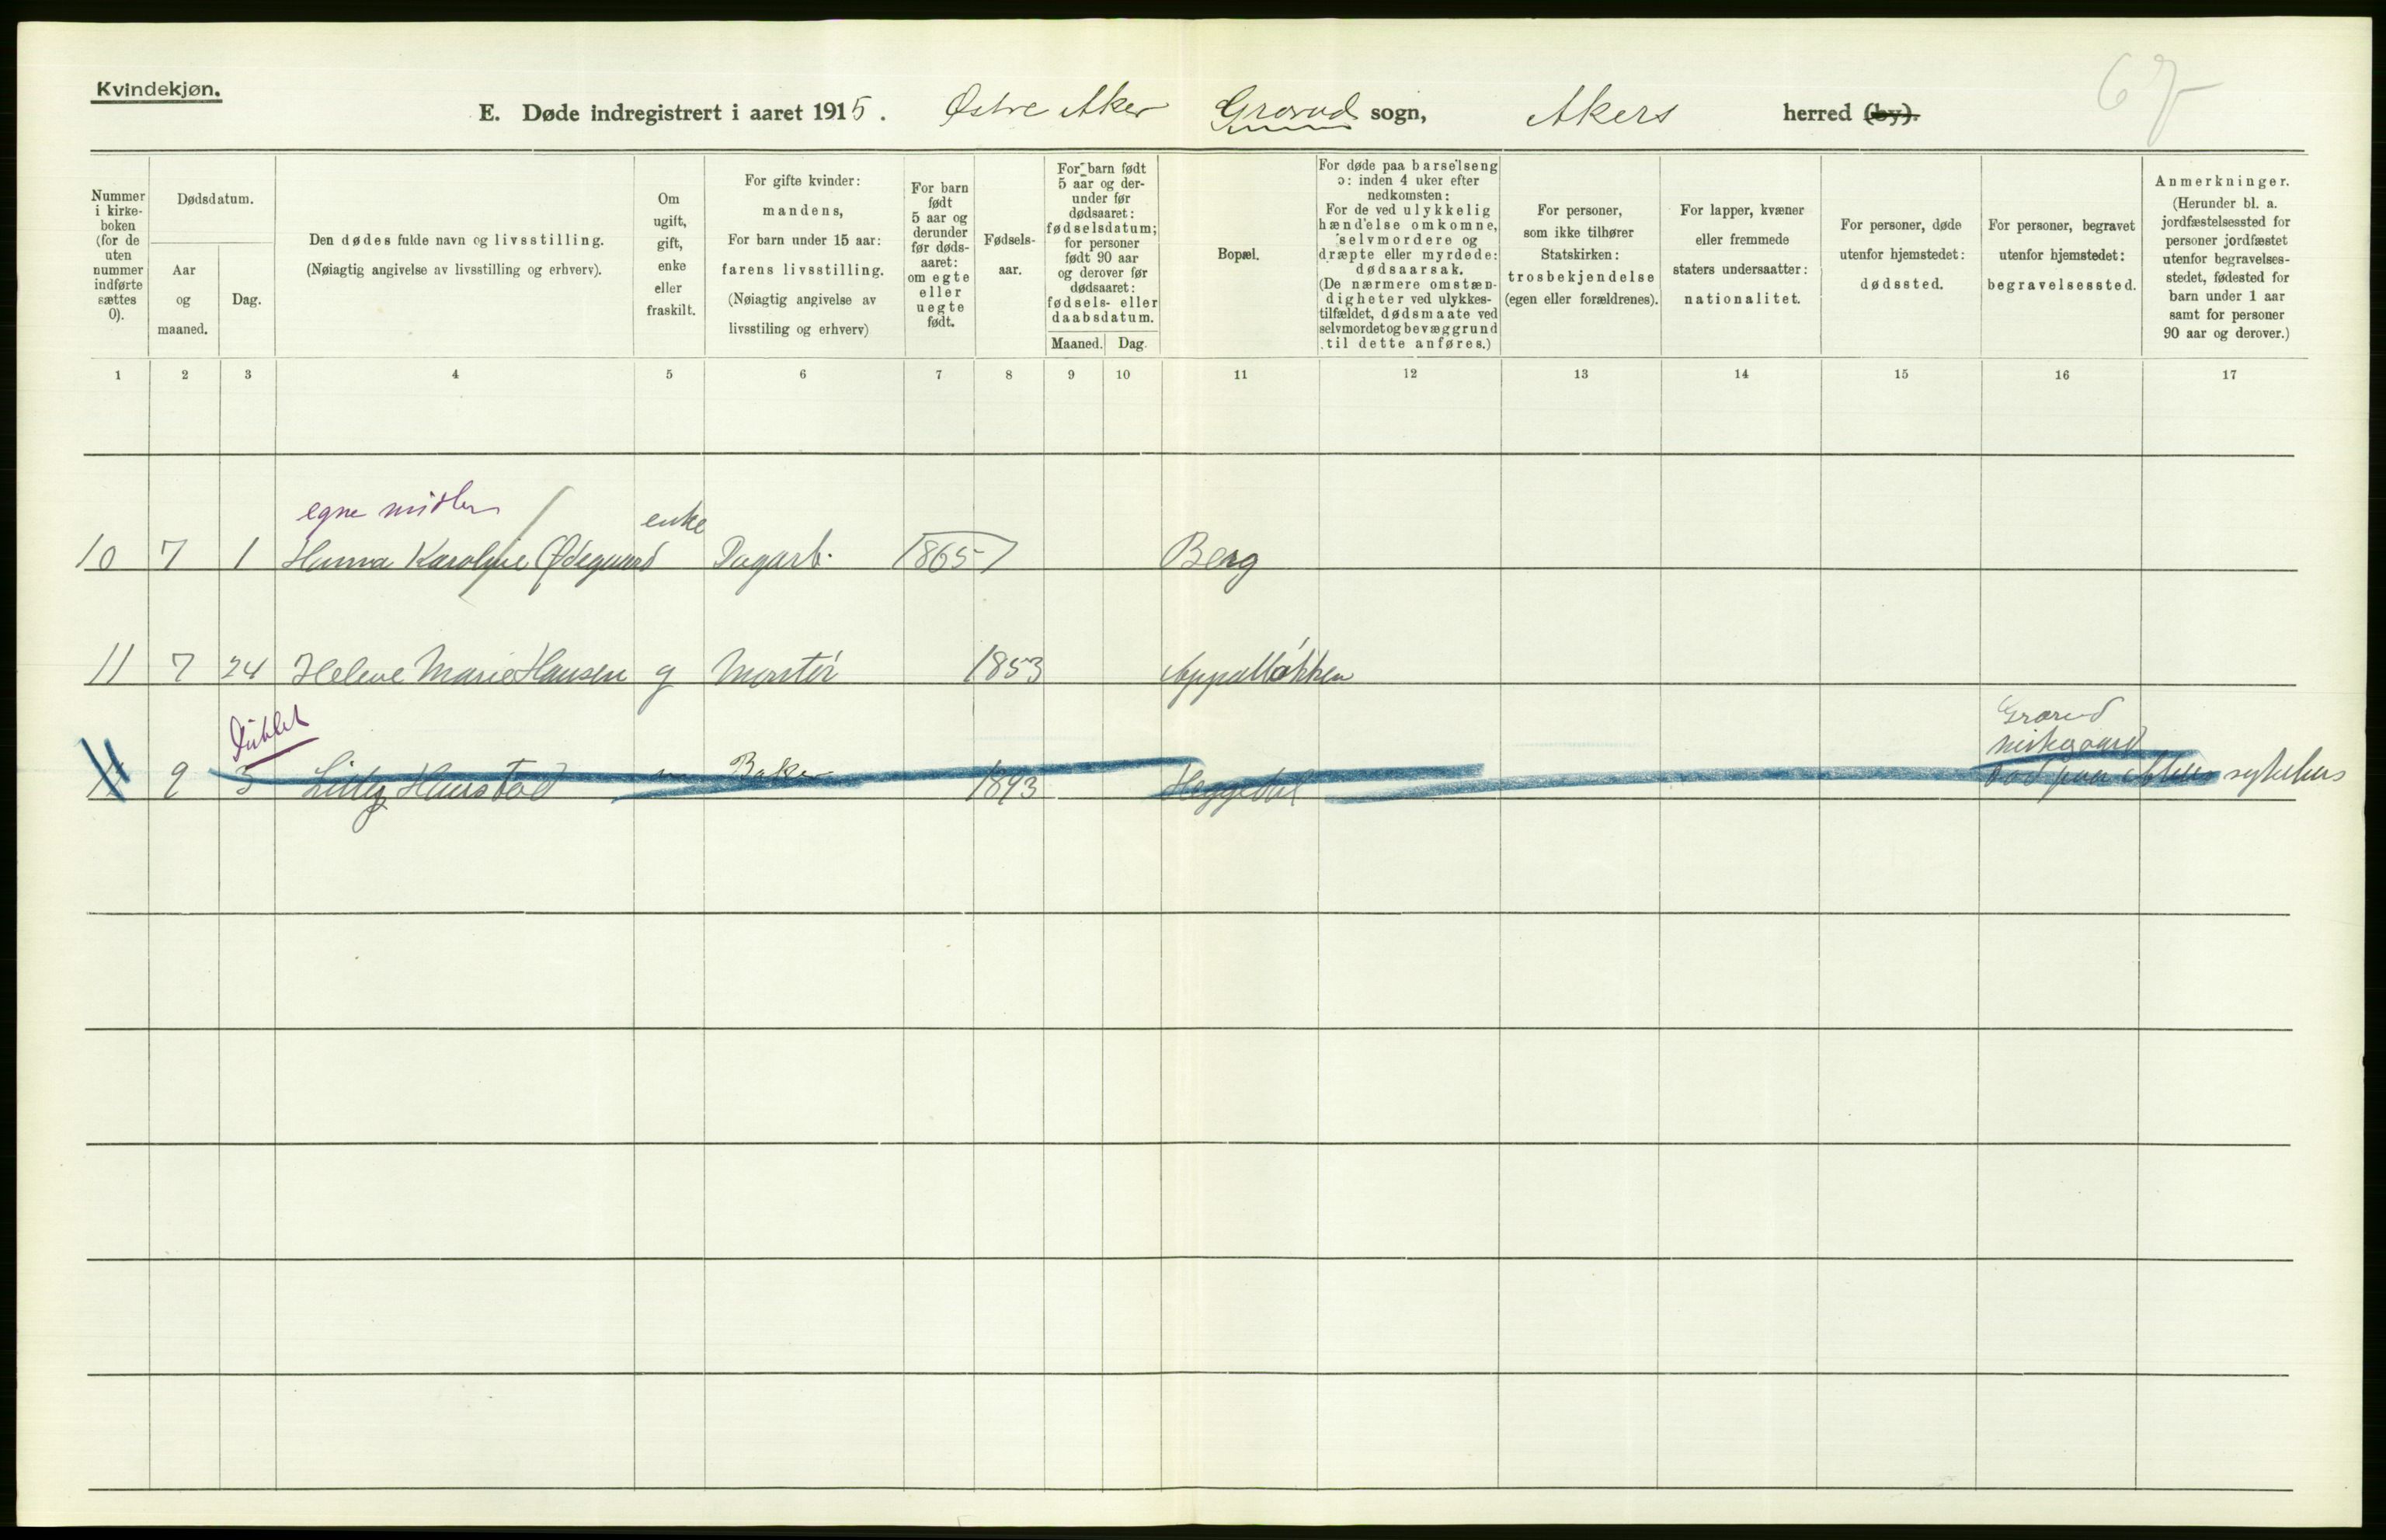 Kvindekjøn.
E. Døde indregistrert i aaret 1915. Østre Aker Grorud sogn, Akers herred (by).
67
Nummer i kirkeboken (for de uten nummer indførte sættes 0).
Dødsdatum.
Aar og maaned.
Dag.
Den dødes fulde navn og livsstilling.
(Nøiagtig angivelse av livsstilling og erhverv).
Om ugift, gift, enke eller fraskilt.
For gifte kvinder: mandens,
For barn under 15 aar: farens livsstilling.
(Nøiagtig angivelse av livsstiling og erhverv)
For barn født 5 aar og derunder før dødsaaret: om egte eller uegte født.
Fødselsaar.
For barn født 5 aar og derunder før dødsaaret: fødselsdatum; for personer født 90 aar og derover før dødsaaret: fødsels- eller daabsdatum.
Maaned. Dag.
Bopæl.
For døde paa barselseng ɔ: inden 4 uker efter nedkomsten:
For de ved ulykkelig hændelse omkomne, selvmordere og dræpte eller myrdede: dødsaarsak.
(De nærmere omstændigheter ved ulykkestilfældet, dødsmaate ved selvmordet og bevæggrund til dette anføres.)
For personer, som ikke tilhører Statskirken: trosbekjendelse (egen eller forældrenes).
For lapper, kvæner eller fremmede staters undersaatter: nationalitet.
For personer, døde utenfor hjemstedet: dødssted.
For personer, begravet utenfor hjemstedet: begravelsessted.
Anmerkninger.
(Herunder bl. a. jordfæstelsessted for personer jordfæstet utenfor begravelsesstedet, fødested for barn under 1 aar samt for personer 90 aar og derover.)
1 2 3 4 5 6 7 8 9 10 11 12 13 14 15 16 17
egne midler
enke
10 7 1 Hanna Karoline Ødegaard Dagarb. 1865 Berg
11 7 24 Helene Marie Hansen g Montør 1853 Appalløkken
Dublet
Grorud
kirkegaard
11 9 5 Lilly Haustad Baker 1893 Heggedal Død paa Akers sykehus